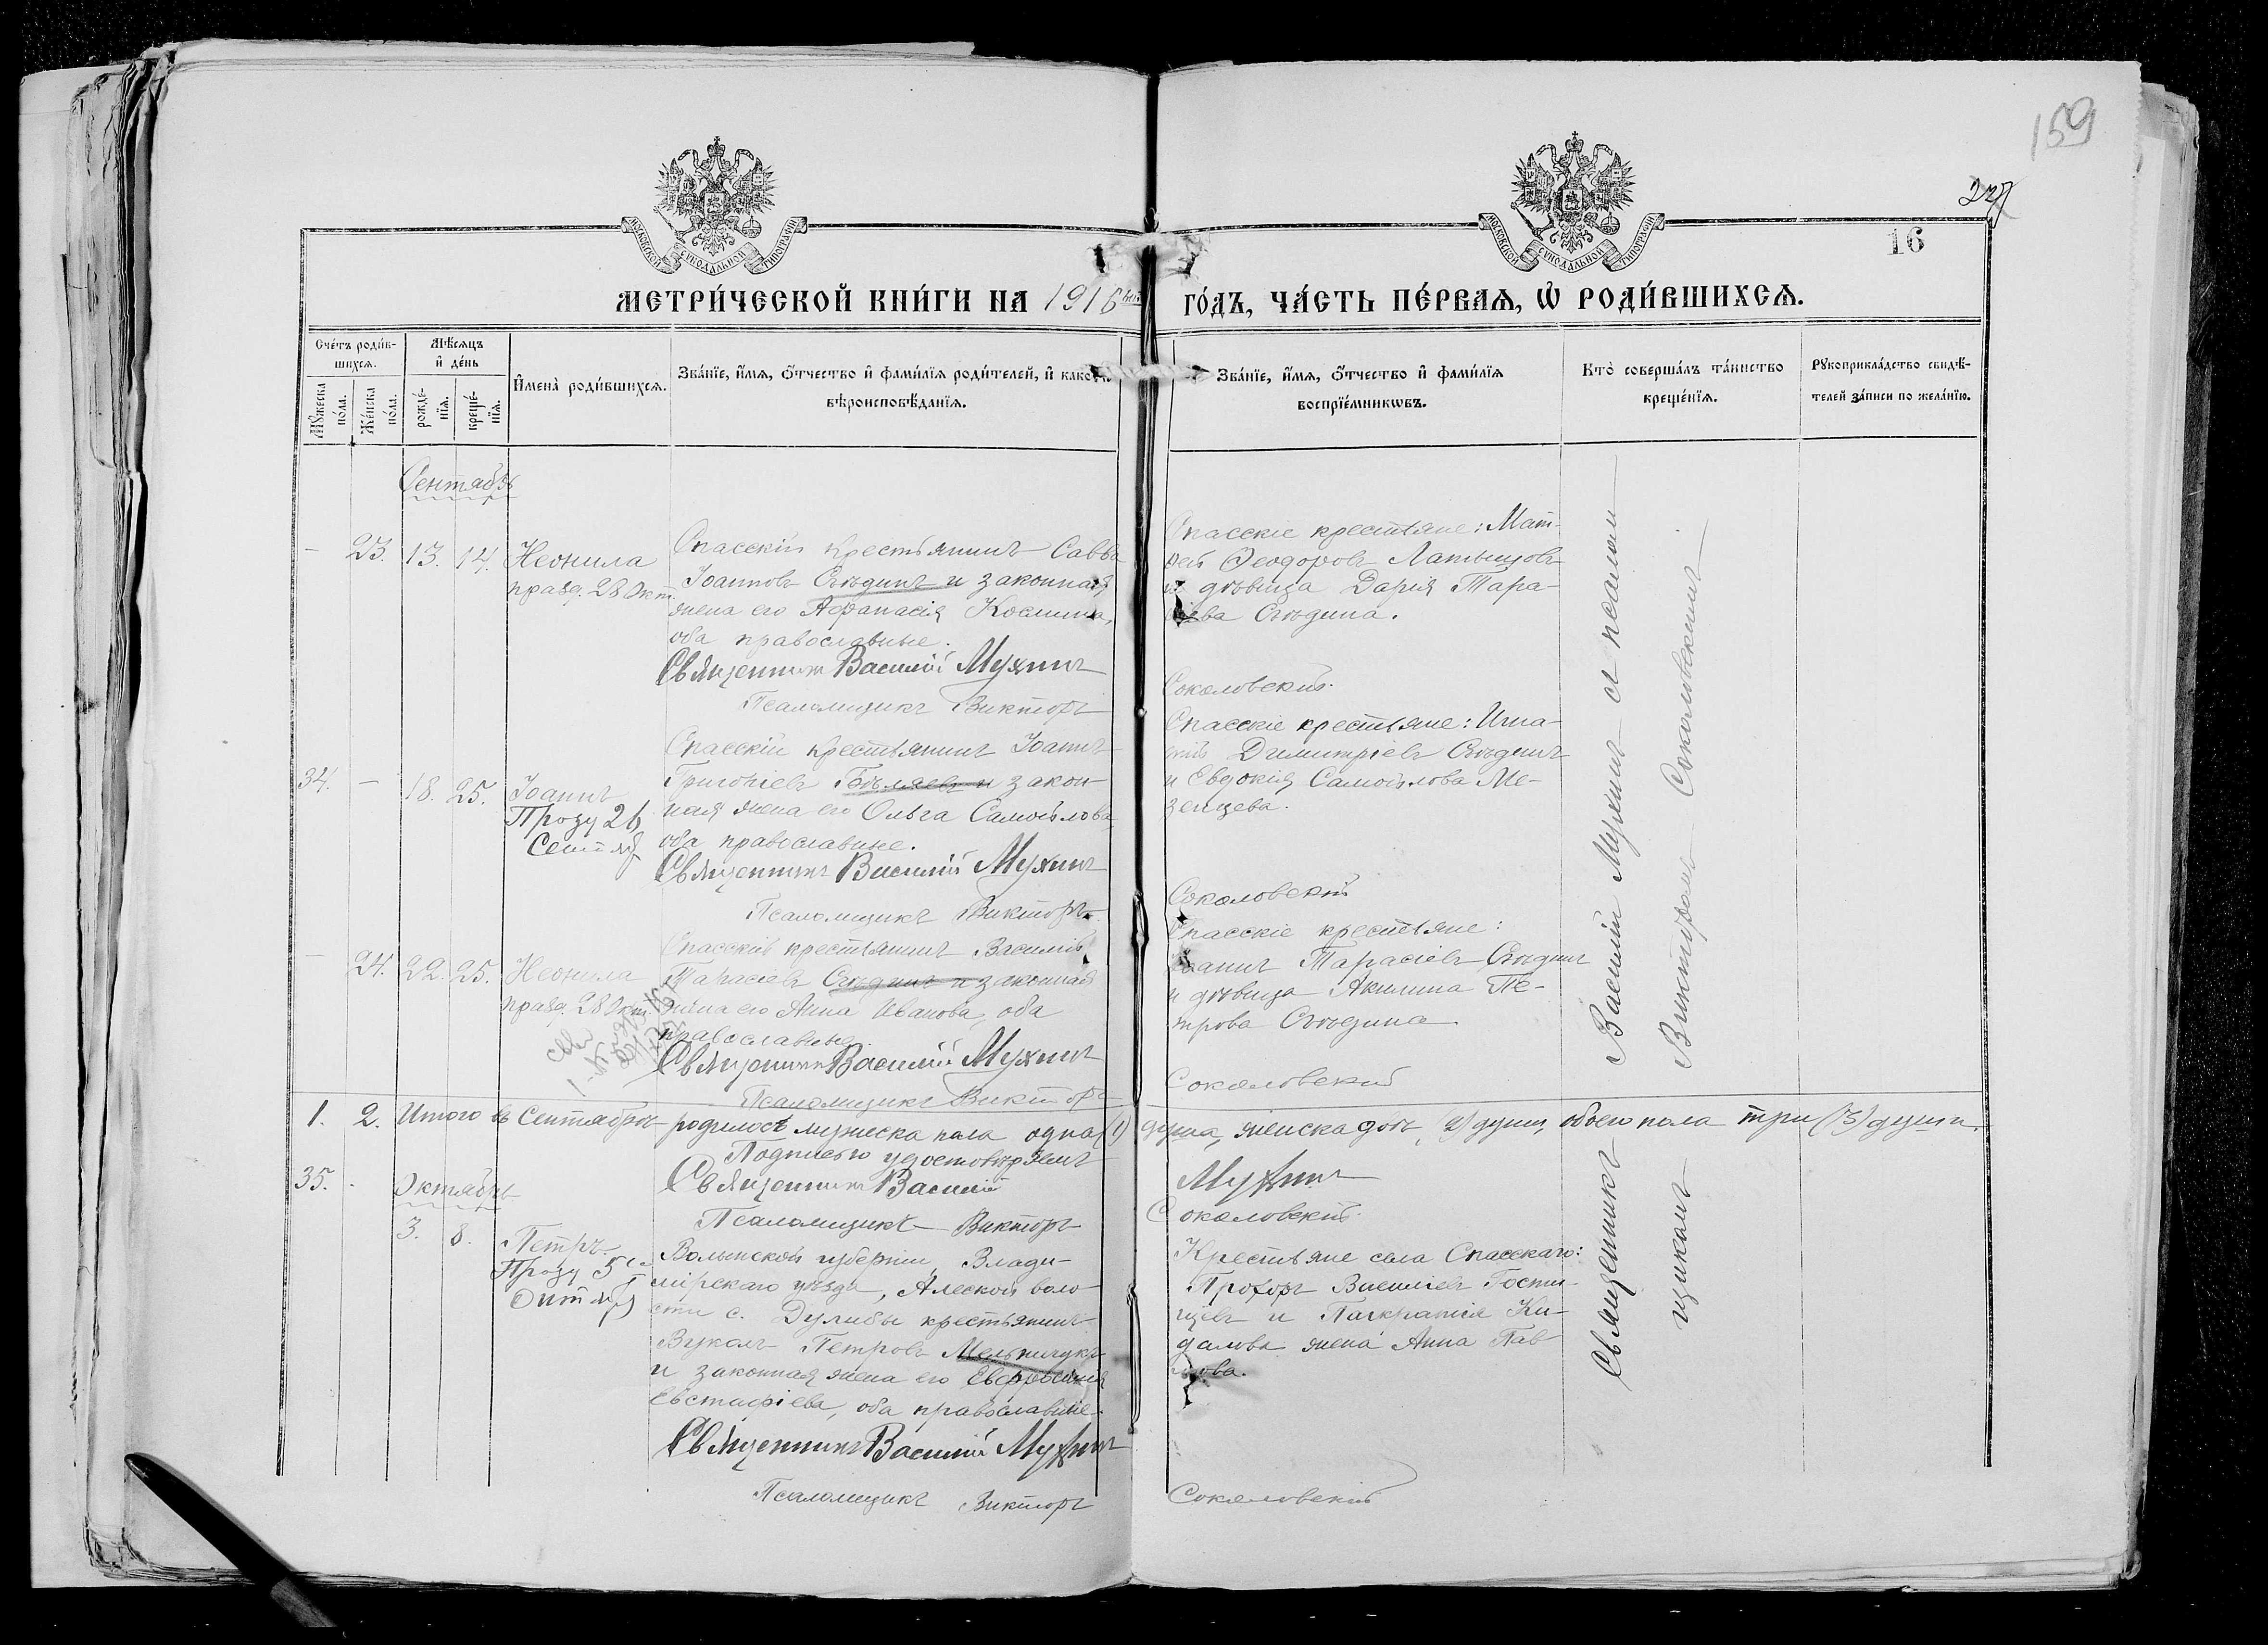 159
227
16
МОСКОВСКОЙ СѴНОДАЛЬНОЙ ТИПОГРАФІИ
МОСКОВСКОЙ СѴНОДАЛЬНОЙ ТИПОГРАФІИ
МЕТРИ́ЧЕСКОЙ КНИ́ГИ НА 1916 го́дъ, ча́сть пе́рваѧ, ѡ҆ роди́вшихсѧ.
Сче́тъ роди́вшихсѧ.
Мꙋ́жеска по́ла.
Же́нска по́ла.
Мѣ́сѧцъ и҆ де́нь
рожде́нїѧ.
креще́нїѧ.
И҆мена̀ роди́вшихсѧ.
Зва́нїе, и҆́мѧ, ѻ҆́тчество и҆ фами́лїѧ роди́телей, и҆ како́гѡ
вѣроисповѣ́данїѧ.
Зва́нїе, и҆́мѧ, ѻ҆́тчество и҆ фами́лїѧ
воспрїе́мникѡвъ.
Кто̀ соверша́лъ та́инство
креще́нїѧ.
Рꙋкоприкла́дство свидѣ́-
телей за́писи по жела́нїю.
Сентябрь
- 23. 13. 14. Неонила
празд. 28 Окт.
Спасскій крестьянинъ Савва
Іоанновъ Сѣдинъ и законная
жена его Афанасія Космина,
оба православные.
Священник Василій Мухинъ
Псаломщикъ Викторъ
Спасскіе крестьяне: Мат-
вей Ѳеодоровъ Латынцовъ
и дѣвица Дарія Тара-
сіева Сѣдина.
Соколовскій.
34. - 18. 25. Іоаннъ
Празд 26
Сентяб
Спасскій крестьянинъ Іоаннъ
Григоріевъ Бѣляевъ и закон-
ная жена его Ольга Самойлова
оба православные.
Священникъ Василій Мухинъ
Псаломщикъ Викторъ
Спасскіе крестьяне: Игна-
тій Димитріевъ Сѣдинъ
и Евдокія Самойлова Ме-
зенцева.
Соколовскій
- 24. 22. 25. Неонила
празд. 28 Окт.
Спасскій крестьянинъ Василій
Тарасіевъ Сѣдинъ и законная
жена его Анна Иванова, оба
православные.
Священникъ Василій Мухинъ
Псаломщикъ Викторъ
Спасскіе крестьяне:
Іоаннъ Тарасіевъ Сѣдинъ
и дѣвица Акилина Пе-
трова Сѣдина.
Соколовскій
1. 2. Итого въ Сентябрѣ родилось мужеска пола одна (1) душа, женска двѣ (2) души, обоего пола три (3) души.
Подписью удостовѣряемъ
Священникъ Василій Мухинъ
Псаломщикъ Викторъ Соколовскій.
35. - Октябрь
3. 8. Петръ.
Празд 5го
Октяб
Волынской губерніи, Влади-
мірскаго уѣзда, Алеской воло-
сти с. Дулибы крестьянинъ
Вуколъ Петровъ Мельничукъ
и законная жена его Евфросинія
Евстафіева, оба православные.
Священникъ Василій Мухинъ
Псаломщикъ Викторъ
Крестьяне села Спасскаго:
Прохоръ Василіевъ Гости-
щевъ и Панкратія Ки-
далова жена Анна Пав-
лова.
Соколовскій
Священникъ Василій Мухинъ съ псалом-
щикомъ Викторомъ Соколовскимъ